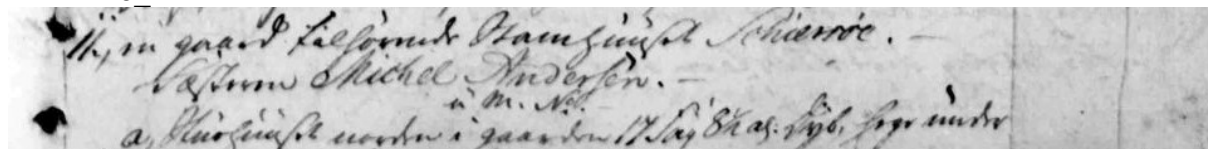 11., en gaard tilhørende Stamhuuset Schierrøe. -
Fæsterne Michel Andersen. -
u M. No.
a, Stuehuuset norden i gaarden 17 Fag 8½ al: dyb, heye under